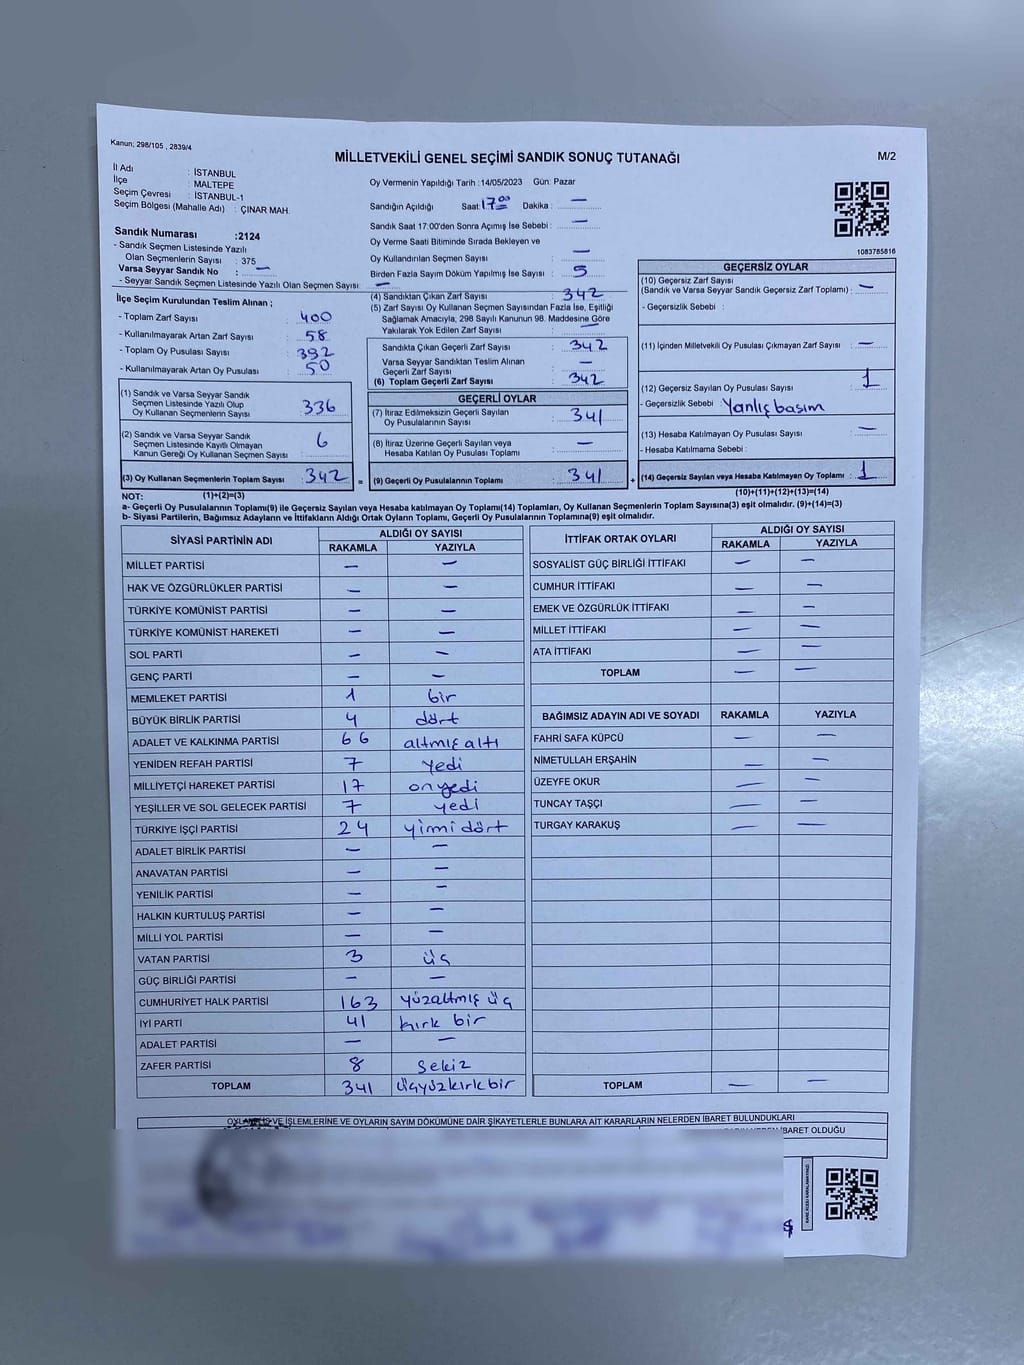 Kanun; 298/105 , 2839/4
MİLLETVEKİLİ GENEL SEÇİMİ SANDIK SONUÇ TUTANAĞI
M/2
İl Adı : İSTANBUL
İlçe : MALTEPE
Seçim Çevresi : İSTANBUL-1
Seçim Bölgesi (Mahalle Adı) : ÇINAR MAH.
Sandık Numarası :2124
- Sandık Seçmen Listesinde Yazılı
Olan Seçmenlerin Sayısı : 375
Varsa Seyyar Sandık No : —
- Seyyar Sandık Seçmen Listesinde Yazılı Olan Seçmen Sayısı: —
İlçe Seçim Kurulundan Teslim Alınan ;
- Toplam Zarf Sayısı : 400
- Kullanılmayarak Artan Zarf Sayısı : 58
- Toplam Oy Pusulası Sayısı : 392
- Kullanılmayarak Artan Oy Pusulası : 50
(1) Sandık ve Varsa Seyyar Sandık
Seçmen Listesinde Yazılı Olup
Oy Kullanan Seçmenlerin Sayısı : 336
(2) Sandık ve Varsa Seyyar Sandık
Seçmen Listesinde Kayıtlı Olmayan
Kanun Gereği Oy Kullanan Seçmen Sayısı : 6
(3) Oy Kullanan Seçmenlerin Toplam Sayısı : 342 =
Oy Vermenin Yapıldığı Tarih :14/05/2023 Gün: Pazar
Sandığın Açıldığı Saat: 17 00 Dakika : —
Sandık Saat 17:00'den Sonra Açımış İse Sebebi : —
Oy Verme Saati Bitiminde Sırada Bekleyen ve
Oy Kullandırılan Seçmen Sayısı : —
Birden Fazla Sayım Döküm Yapılmış İse Sayısı : 5
(4) Sandıktan Çıkan Zarf Sayısı : 342
(5) Zarf Sayısı Oy Kullanan Seçmen Sayısından Fazla İse, Eşitliği
Sağlamak Amacıyla, 298 Sayılı Kanunun 98. Maddesine Göre
Yakılarak Yok Edilen Zarf Sayısı : —
Sandıkta Çıkan Geçerli Zarf Sayısı : 342
Varsa Seyyar Sandıktan Teslim Alınan
Geçerli Zarf Sayısı : —
(6) Toplam Geçerli Zarf Sayısı : 342
GEÇERLİ OYLAR
(7) İtiraz Edilmeksizin Geçerli Sayılan
Oy Pusulalarının Sayısı : 341
(8) İtiraz Üzerine Geçerli Sayılan veya
Hesaba Katılan Oy Pusulası Toplamı : —
(9) Geçerli Oy Pusulalarının Toplamı : 341 +
1083785816
GEÇERSİZ OYLAR
(10) Geçersiz Zarf Sayısı
(Sandık ve Varsa Seyyar Sandık Geçersiz Zarf Toplamı) : —
- Geçersizlik Sebebi :
(11) İçinden Milletvekili Oy Pusulası Çıkmayan Zarf Sayısı : —
(12) Geçersiz Sayılan Oy Pusulası Sayısı : 1
- Geçersizlik Sebebi : Yanlış basım
(13) Hesaba Katılmayan Oy Pusulası Sayısı : —
- Hesaba Katılmama Sebebi :
(14) Geçersiz Sayılan veya Hesaba Katılmayan Oy Toplamı : 1
NOT: (1)+(2)=(3) (10)+(11)+(12)+(13)=(14)
a- Geçerli Oy Pusulalarının Toplamı(9) ile Geçersiz Sayılan veya Hesaba katılmayan Oy Toplamı(14) Toplamları, Oy Kullanan Seçmenlerin Toplam Sayısına(3) eşit olmalıdır. (9)+(14)=(3)
b- Siyasi Partilerin, Bağımsız Adayların ve İttifakların Aldığı Ortak Oyların Toplamı, Geçerli Oy Pusulalarının Toplamına(9) eşit olmalıdır.
SİYASİ PARTİNİN ADI ALDIĞI OY SAYISI
RAKAMLA YAZIYLA
MİLLET PARTİSİ — —
HAK VE ÖZGÜRLÜKLER PARTİSİ — —
TÜRKİYE KOMÜNİST PARTİSİ — —
TÜRKİYE KOMÜNİST HAREKETİ — —
SOL PARTİ — —
GENÇ PARTİ — —
MEMLEKET PARTİSİ 1 bir
BÜYÜK BİRLİK PARTİSİ 4 dört
ADALET VE KALKINMA PARTİSİ 66 altmış altı
YENİDEN REFAH PARTİSİ 7 yedi
MİLLİYETÇİ HAREKET PARTİSİ 17 onyedi
YEŞİLLER VE SOL GELECEK PARTİSİ 7 yedi
TÜRKİYE İŞÇİ PARTİSİ 24 yirmi dört
ADALET BİRLİK PARTİSİ — —
ANAVATAN PARTİSİ — —
YENİLİK PARTİSİ — —
HALKIN KURTULUŞ PARTİSİ — —
MİLLİ YOL PARTİSİ — —
VATAN PARTİSİ 3 üç
GÜÇ BİRLİĞİ PARTİSİ — —
CUMHURİYET HALK PARTİSİ 163 yüzaltmış üç
İYİ PARTİ 41 kırk bir
ADALET PARTİSİ — —
ZAFER PARTİSİ 8 Sekiz
TOPLAM 341 üçyüzkırkbir
İTTİFAK ORTAK OYLARI ALDIĞI OY SAYISI
RAKAMLA YAZIYLA
SOSYALİST GÜÇ BİRLİĞİ İTTİFAKI — —
CUMHUR İTTİFAKI — —
EMEK VE ÖZGÜRLÜK İTTİFAKI — —
MİLLET İTTİFAKI — —
ATA İTTİFAKI — —
TOPLAM — —
BAĞIMSIZ ADAYIN ADI VE SOYADI RAKAMLA YAZIYLA
FAHRİ SAFA KÜPCÜ — —
NİMETULLAH ERŞAHİN — —
ÜZEYFE OKUR — —
TUNCAY TAŞÇI — —
TURGAY KARAKUŞ — —
TOPLAM — —
VE İŞLEMLERİNE VE OYLARIN SAYIM DÖKÜMÜNE DAİR ŞİKAYETLERLE BUNLARA AİT KARARLARIN NELERDEN İBARET BULUNDUKLARI
İBARET OLDUĞU